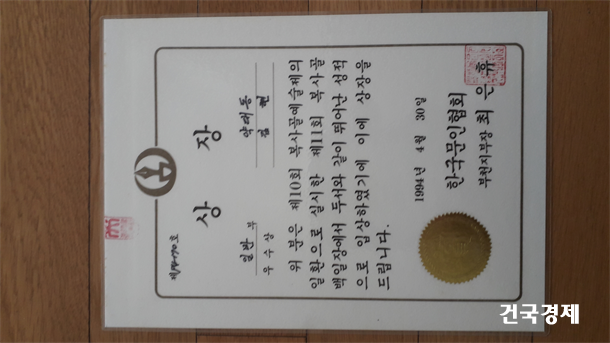 상 장
일반 부
우수상
약대동
위 분은 제10회 복사골예술제의
일환으로 실시한 제11회 복사골
백일장에서 두서와 같이 뛰어난 성적
으로 입상하였기에 이에 상장을
드립니다.
1994년 4월 30일
한국문인협회
부천지부장 최 은 휴
건국경제